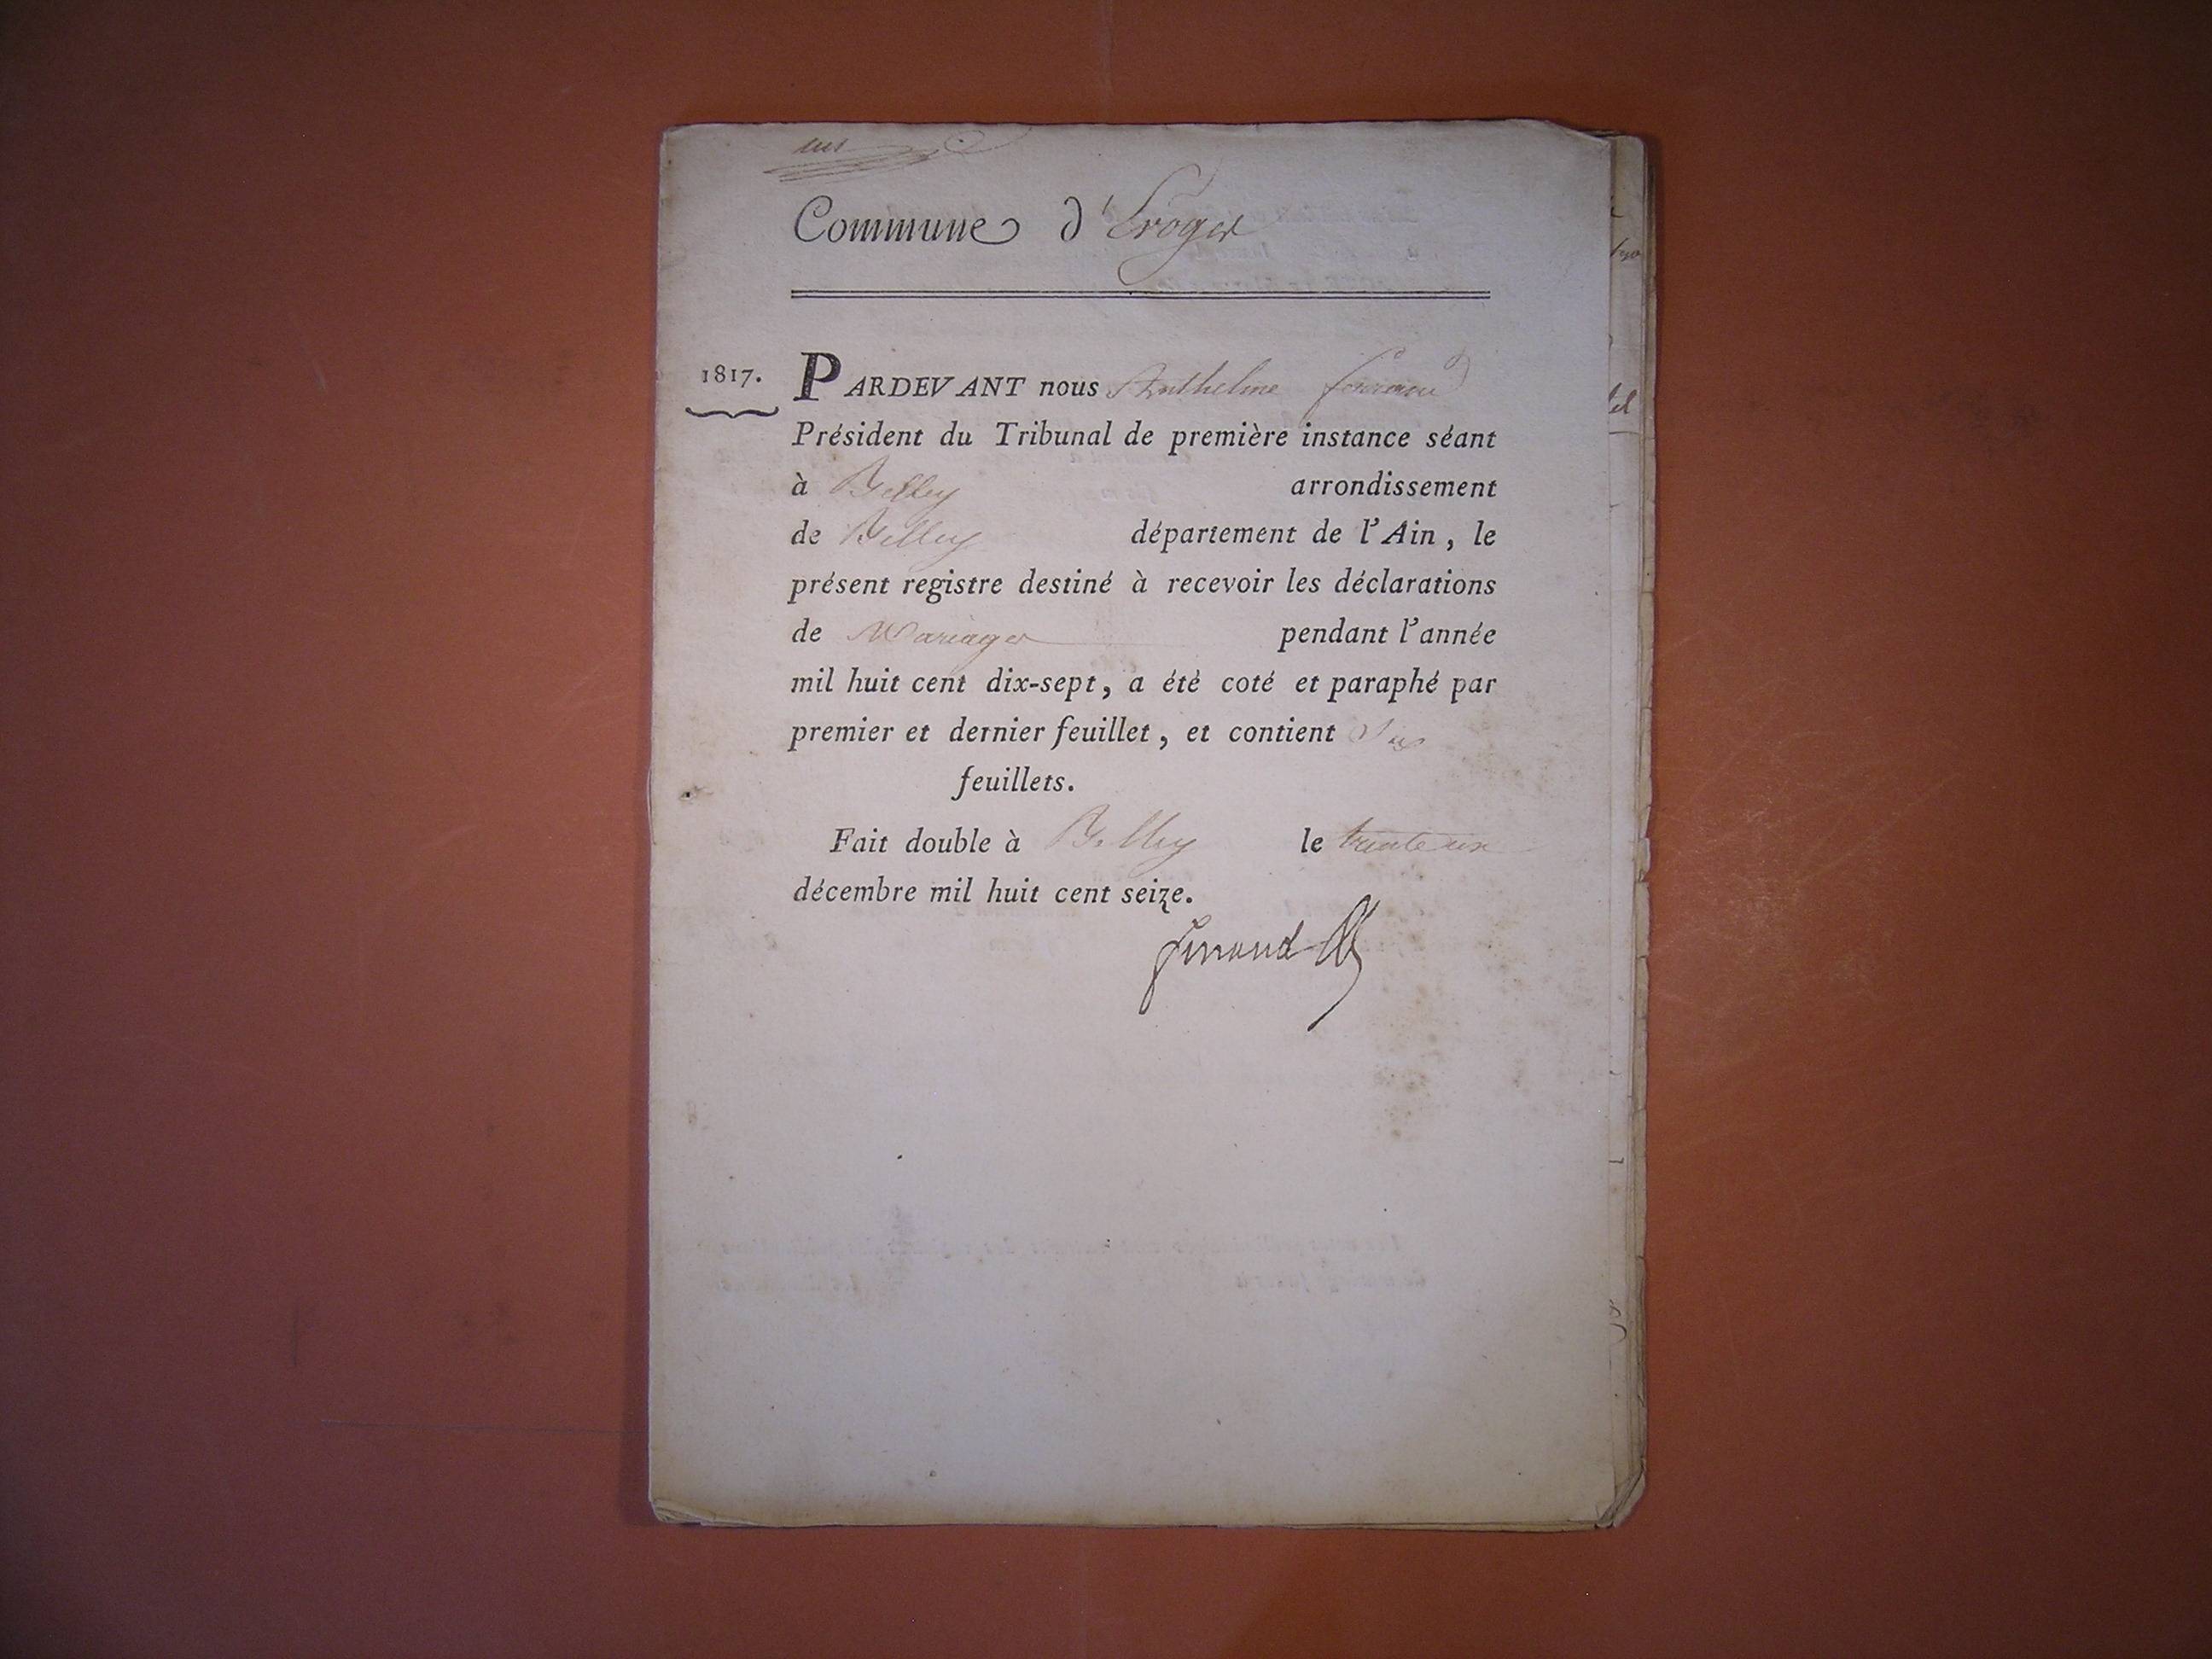 Commune d'Evoges
1817.
PARDEVANT nous Anthelme ferrand
Président du Tribunal de première instance séant
à Belley arrondissement
de Belley département de l'Ain, le
présent registre destiné à recevoir les déclarations
de Mariages pendant l'année
mil huit cent dix-sept, a été coté et paraphé par
premier et dernier feuillet, et contient Six
feuillets.
Fait double à Belley le trente un
décembre mil huit cent seize.